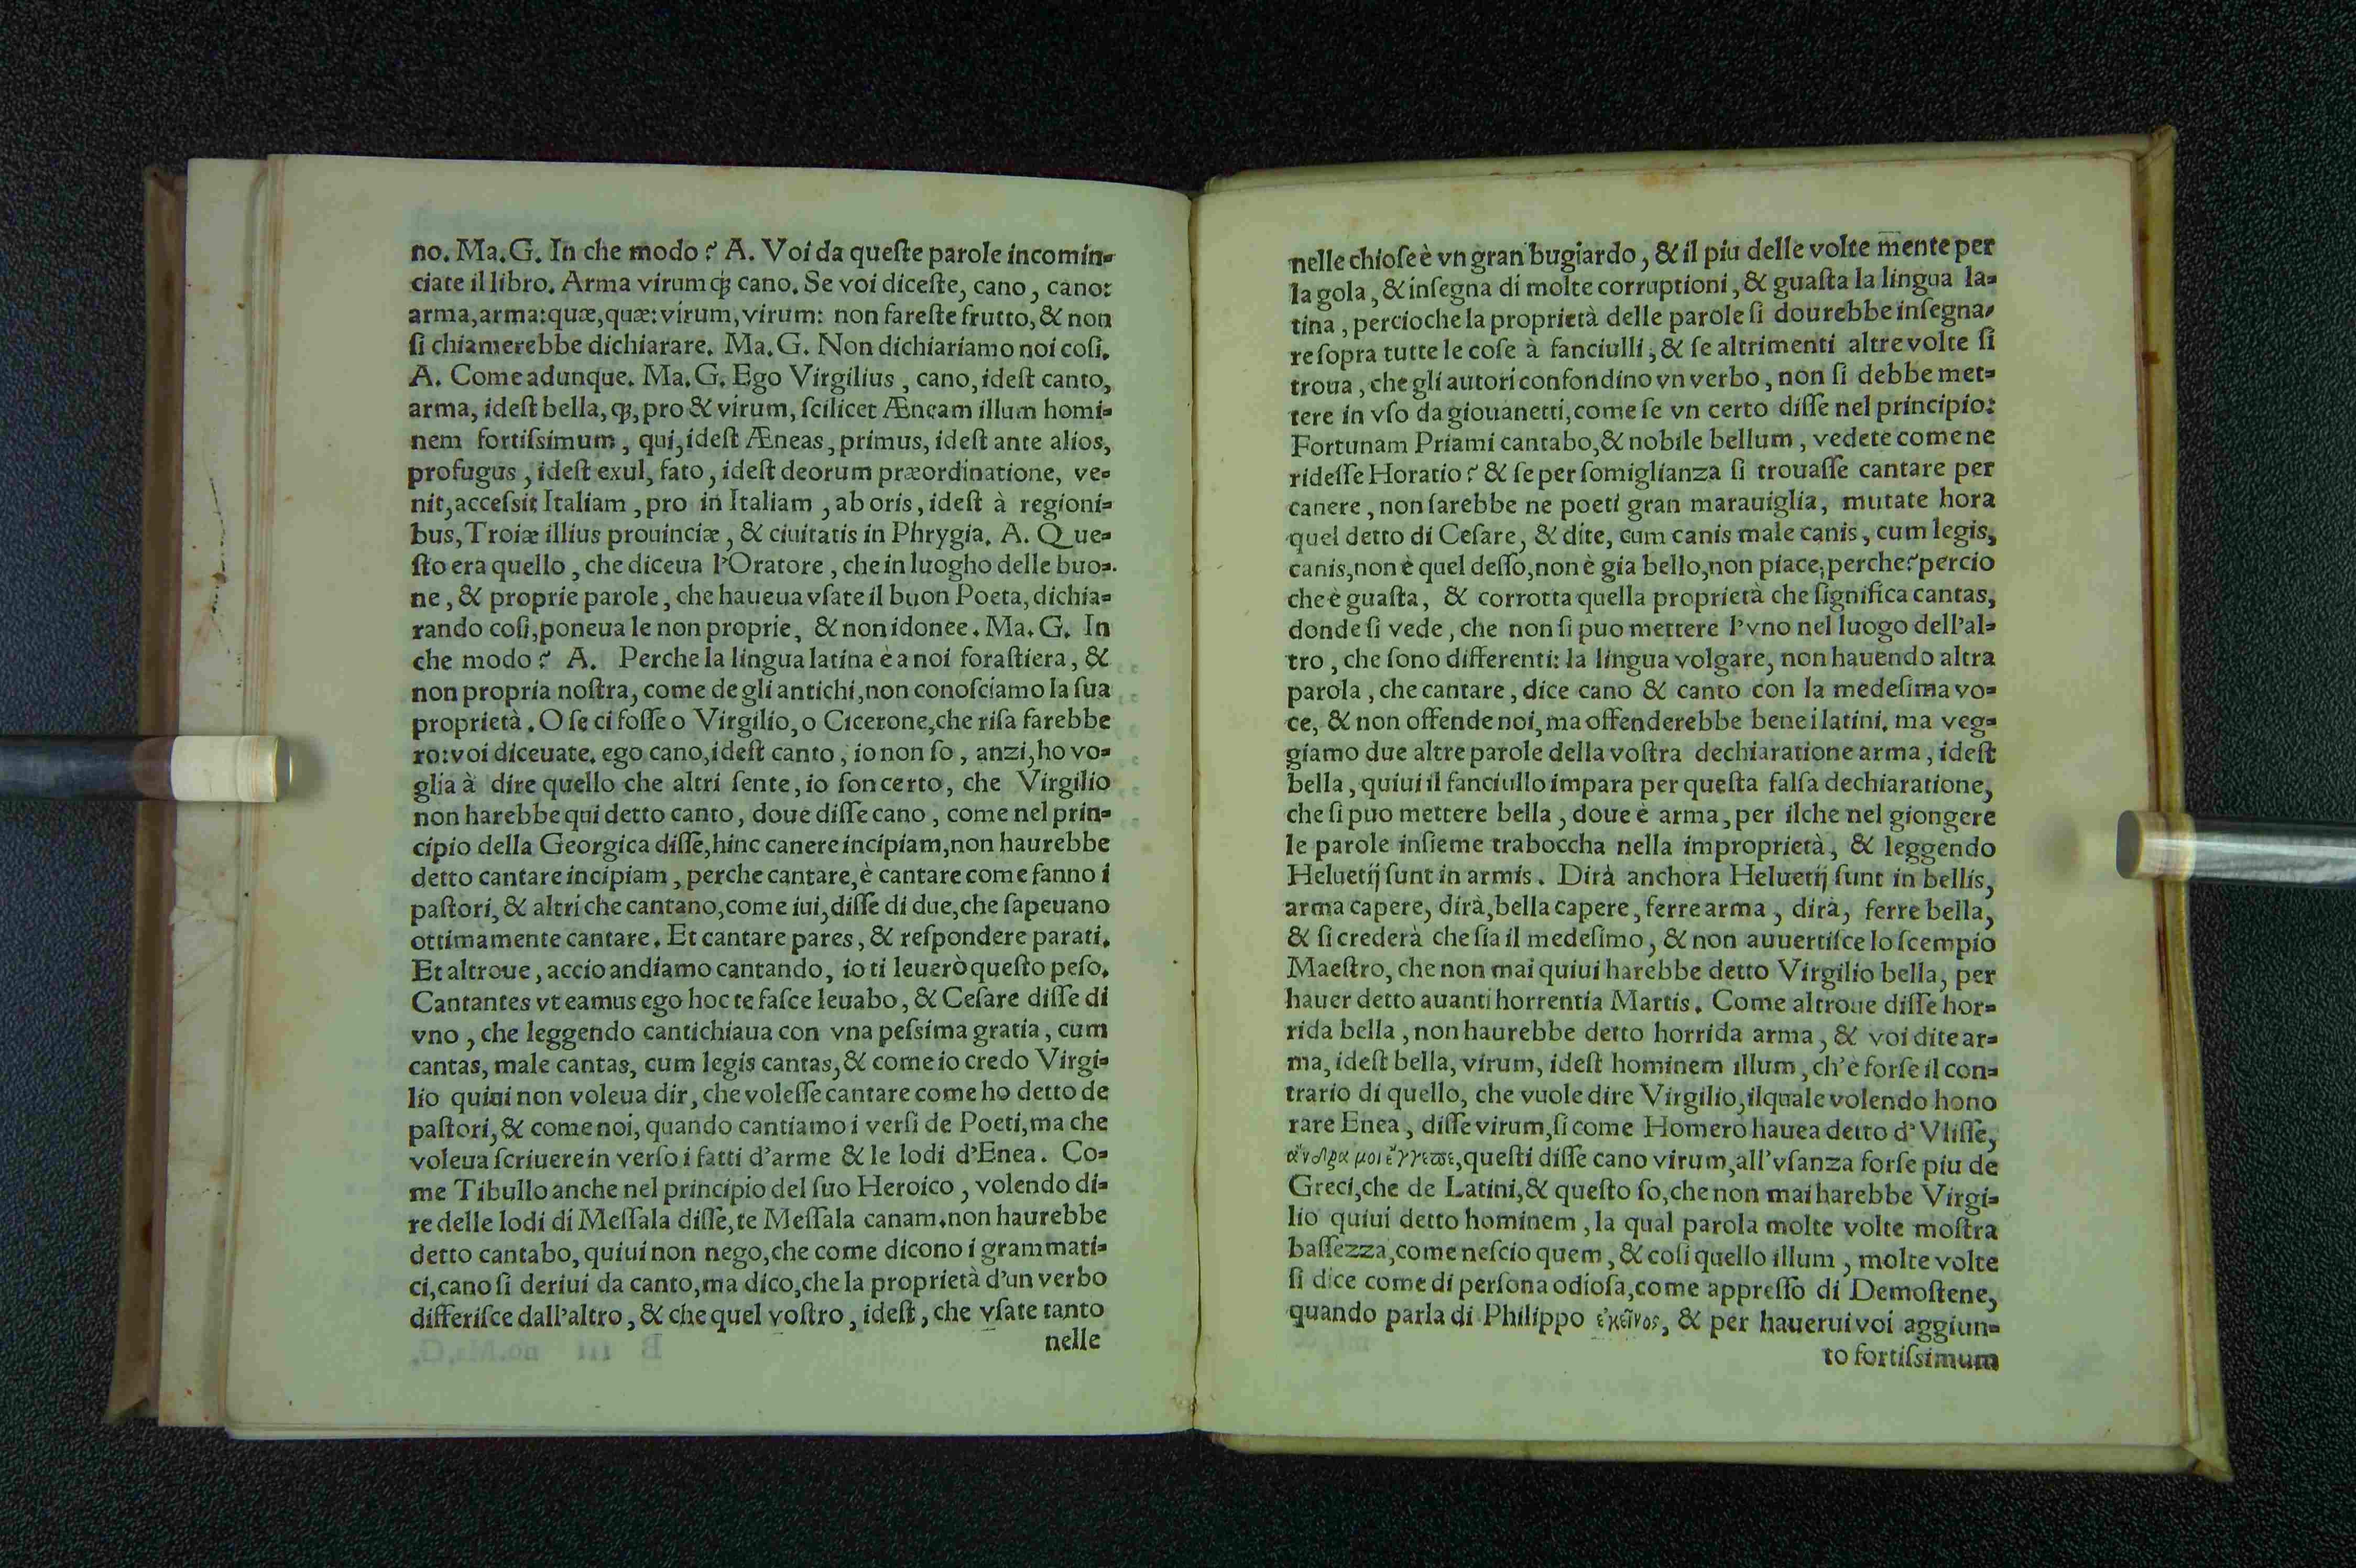 no. Ma.G. In che modo? A. Voi da queſte parole incomin-
ciate il libro. Arma virumq́; cano. Se voi diceſte, cano, cano:
arma,arma:quæ,quæ:virum,virum: non fareſte frutto,& non
ſi chiamerebbe dichiarare. Ma.G. Non dichiariamo noi coſi.
A. Come adunque. Ma.G. Ego Virgilius, cano, ideſt canto,
arma, ideſt bella, q;, pro & virum, ſcilicet Æneam illum homi-
nem fortiſsimum, qui, ideſt Æneas, primus, ideſt ante alios,
profugus, ideſt exul, fato, ideſt deorum præordinatione, ve-
nit, acceſsit Italiam, pro in Italiam, ab oris, ideſt à regioni-
bus, Troiæ illius prouinciæ, & ciuitatis in Phrygia. A. Que-
ſto era quello, che diceua l'Oratore, che in luogho delle buo-
ne, & proprie parole, che haueua vſate il buon Poeta, dichia-
rando coſi, poneua le non proprie, & non idonee. Ma.G. In
che modo? A. Perche la lingua latina è a noi foraſtiera, &
non propria noſtra, come de gli antichi, non conoſciamo la ſua
proprietà. O ſe ci foſſe o Virgilio, o Cicerone, che riſa farebbe
ro: voi diceuate. ego cano, ideſt canto, io non ſo, anzi, ho vo-
glia à dire quello che altri ſente, io ſon certo, che Virgilio
non harebbe qui detto canto, doue diſſe cano, come nel prin-
cipio della Georgica diſſe, hinc canere incipiam, non haurebbe
detto cantare incipiam, perche cantare, è cantare come fanno i
paſtori, & altri che cantano, come iui, diſſe di due, che ſapeuano
ottimamente cantare. Et cantare pares, & reſpondere parati.
Et altroue, accio andiamo cantando, io ti leuerò queſto peſo.
Cantantes vt eamus ego hoc te faſce leuabo, & Ceſare diſſe di
vno, che leggendo cantichiaua con vna peſsima gratia, cum
cantas, male cantas, cum legis cantas, & come io credo Virgi-
lio quiui non voleua dir, che voleſſe cantare come ho detto de
paſtori, & come noi, quando cantiamo i verſi de Poeti, ma che
voleua ſcriuere in verſo i fatti d'arme & le lodi d'Enea. Co-
me Tibullo anche nel principio del ſuo Heroico, volendo di-
re delle lodi di Meſſala diſſe, te Meſſala canam. non haurebbe
detto cantabo, quiui non nego, che come dicono i grammati-
ci, cano ſi deriui da canto, ma dico, che la proprietà d'un verbo
differiſce dall'altro, & che quel voſtro, ideſt, che vſate tanto
nelle
nelle chioſe è vn gran bugiardo, & il piu delle volte mente per
la gola, & inſegna di molte corruptioni, & guaſta la lingua la-
tina, percioche la proprietà delle parole ſi dourebbe inſegna-
re ſopra tutte le coſe à fanciulli, & ſe altrimenti altre volte ſi
troua, che gli autori confondino vn verbo, non ſi debbe met-
tere in vſo da giouanetti, come ſe vn certo diſſe nel principio:
Fortunam Priami cantabo, & nobile bellum, vedete come ne
rideſſe Horatio? & ſe per ſomiglianza ſi trouaſſe cantare per
canere, non ſarebbe ne poeti gran marauiglia, mutate hora
quel detto di Ceſare, & dite, cum canis male canis, cum legis,
canis, non è quel deſſo, non è gia bello, non piace, perche? percio
che è guaſta, & corrotta quella proprietà che ſignifica cantas,
donde ſi vede, che non ſi puo mettere l'vno nel luogo dell'al-
tro, che ſono differenti: la lingua volgare, non hauendo altra
parola, che cantare, dice cano & canto con la medeſima vo-
ce, & non offende noi, ma offenderebbe bene i latini. ma veg-
giamo due altre parole della voſtra dechiaratione arma, ideſt
bella, quiui il fanciullo impara per queſta falſa dechiaratione,
che ſi puo mettere bella, doue è arma, per ilche nel giongere
le parole inſieme traboccha nella improprietà, & leggendo
Heluetij ſunt in armis. Dirà anchora Heluetij ſunt in bellis,
arma capere, dirà, bella capere, ferre arma, dirà, ferre bella,
& ſi crederà che ſia il medeſimo, & non auuertiſce lo ſcempio
Maeſtro, che non mai quiui harebbe detto Virgilio bella, per
hauer detto auanti horrentia Martis. Come altroue diſſe hor-
rida bella, non haurebbe detto horrida arma, & voi dite ar-
ma, ideſt bella, virum, ideſt hominem illum, ch'è forſe il con-
trario di quello, che vuole dire Virgilio, ilquale volendo hono
rare Enea, diſſe virum, ſi come Homero hauea detto d'Vliſſe,
ἄνδρα μοι ἔγγεπε, queſti diſſe cano virum, all'vſanza forſe piu de
Greci, che de Latini, & queſto ſo, che non mai harebbe Virgi-
lio quiui detto hominem, la qual parola molte volte moſtra
baſſezza, come neſcio quem, & coſi quello illum, molte volte
ſi dice come di perſona odioſa, come appreſſo di Demoſtene,
quando parla di Philippo ἐκεῖνος, & per hauerui voi aggiun-
to fortiſsimum